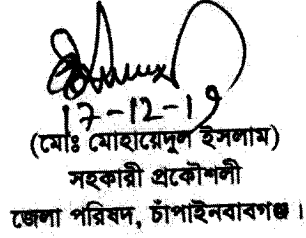 17-12-19
(মোঃ মোহায়েদুল ইসলাম)
সহকারী প্রকৌশলী
জেলা পরিষদ, চাঁপাইনবাবগঞ্জ।